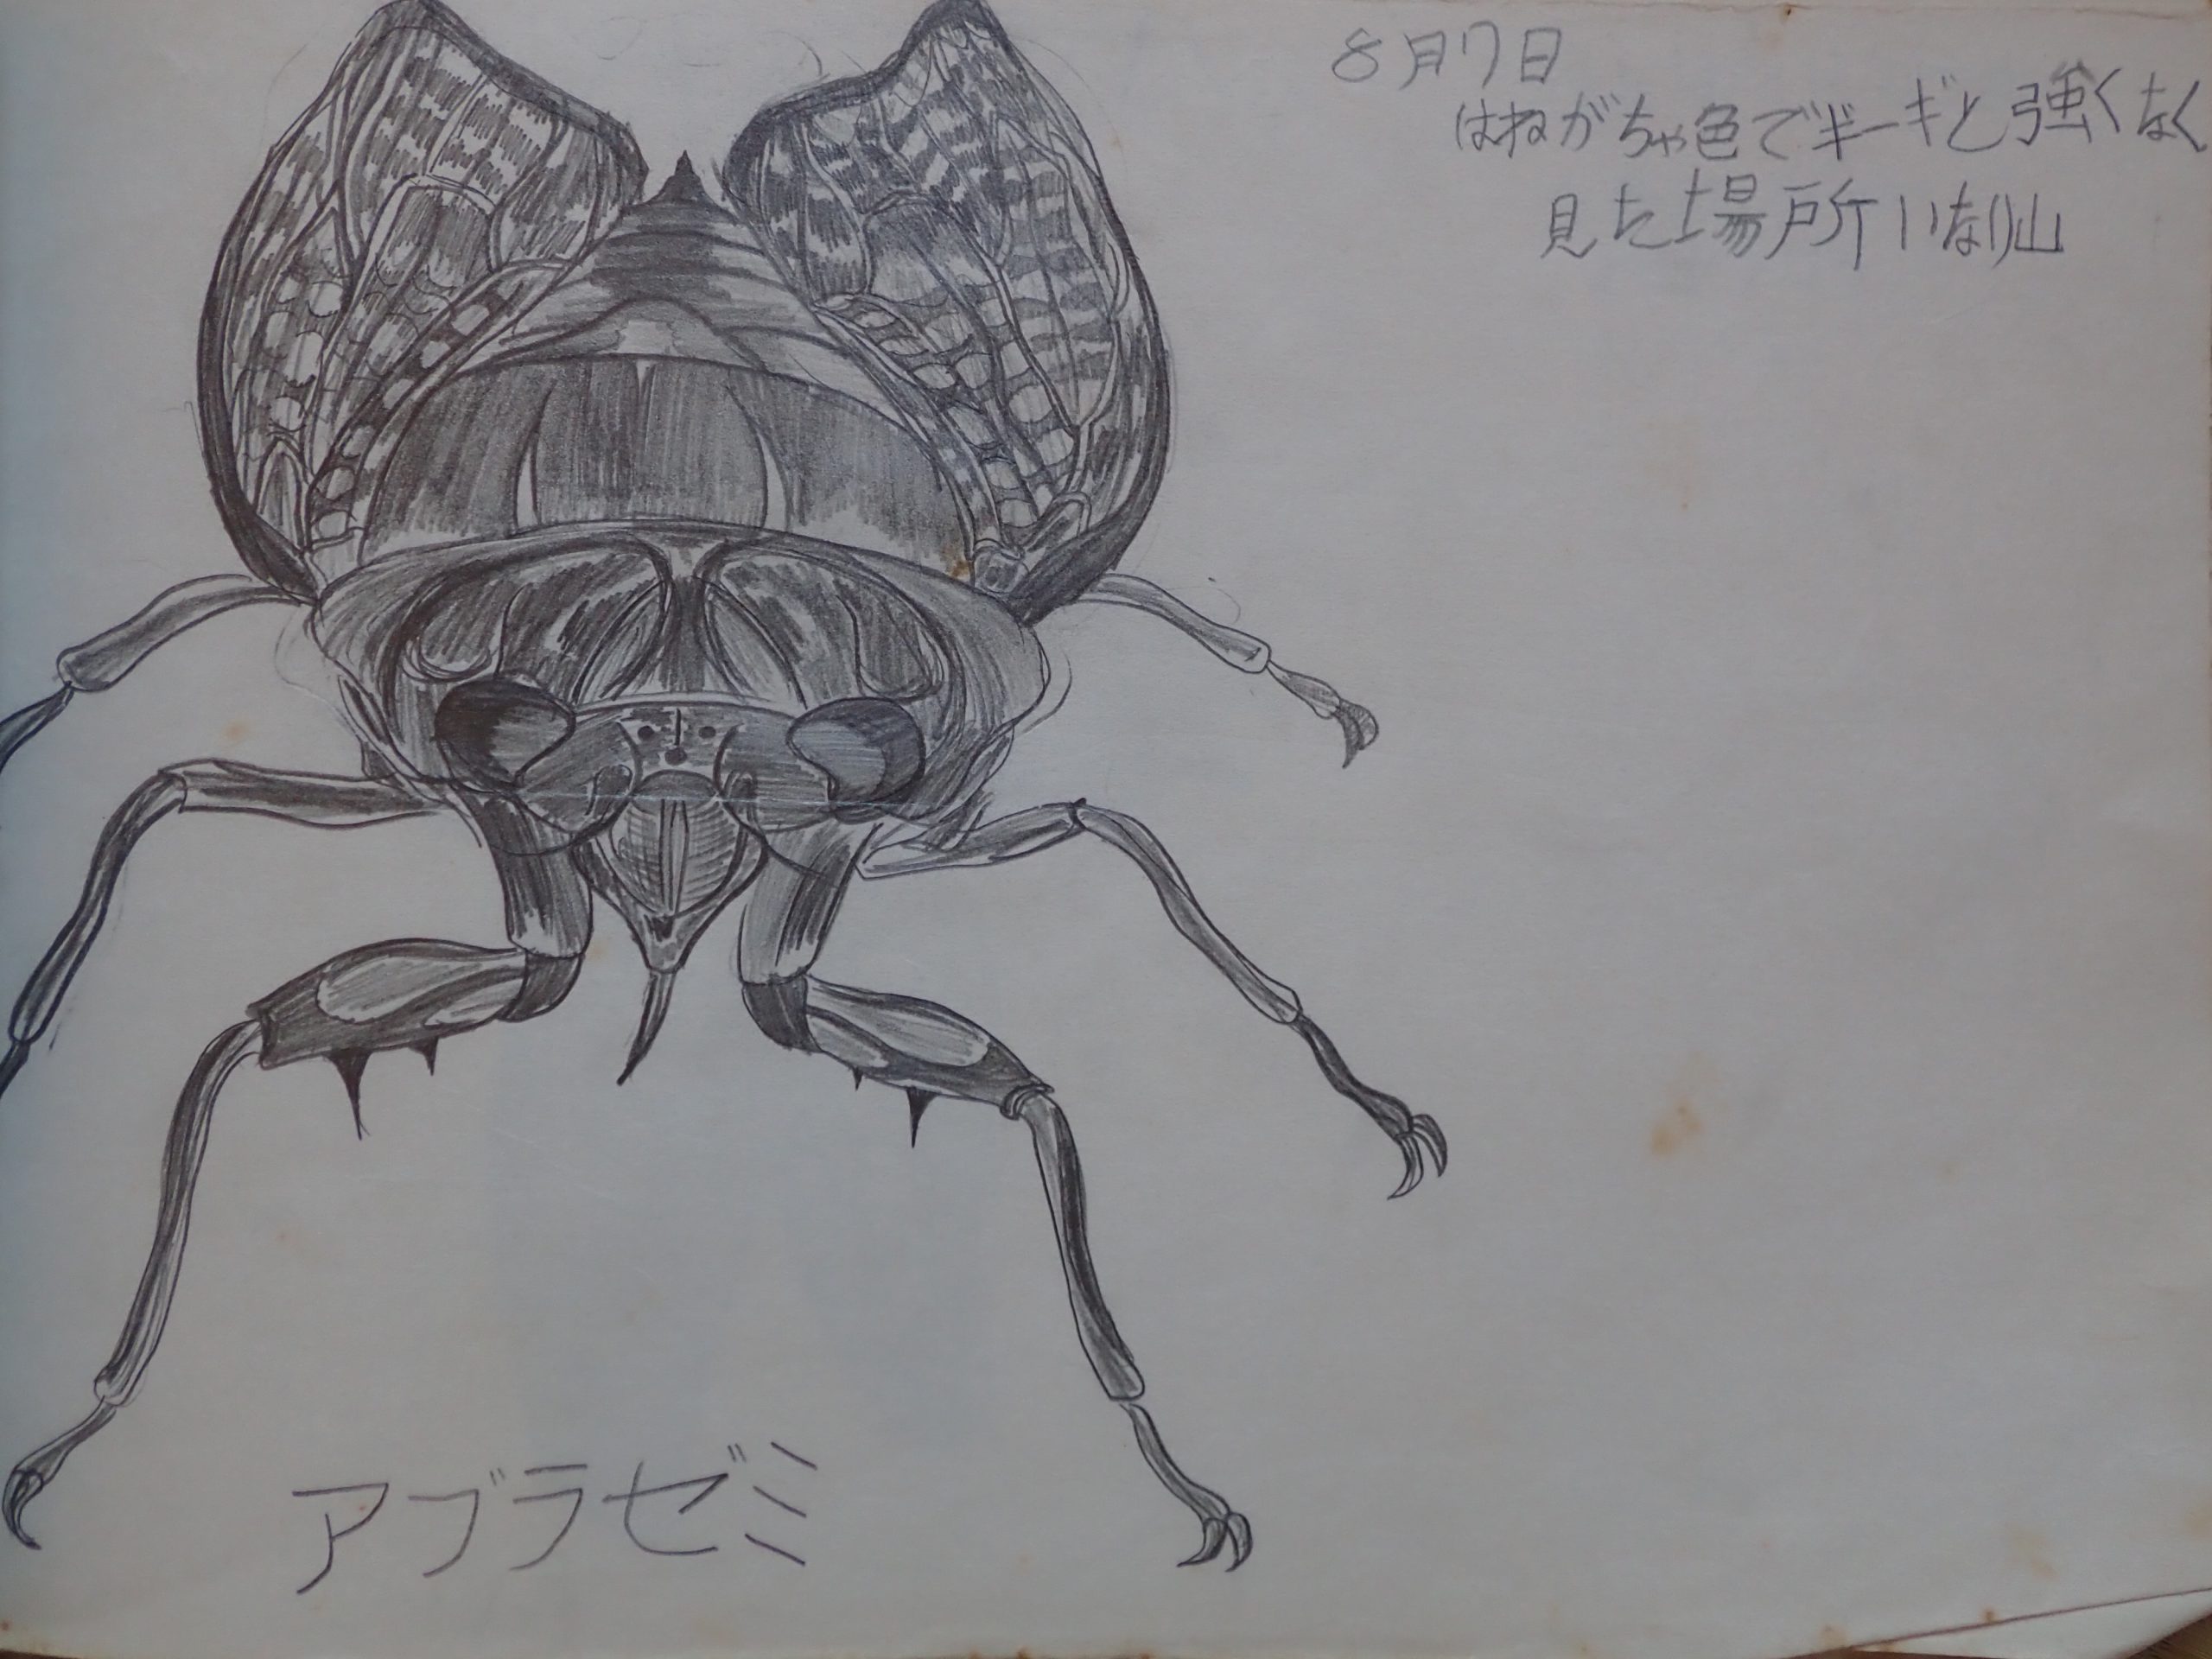 8月7日
はねがちゃ色でギーギと強くなく
見た場所いなり山
アブラゼミ